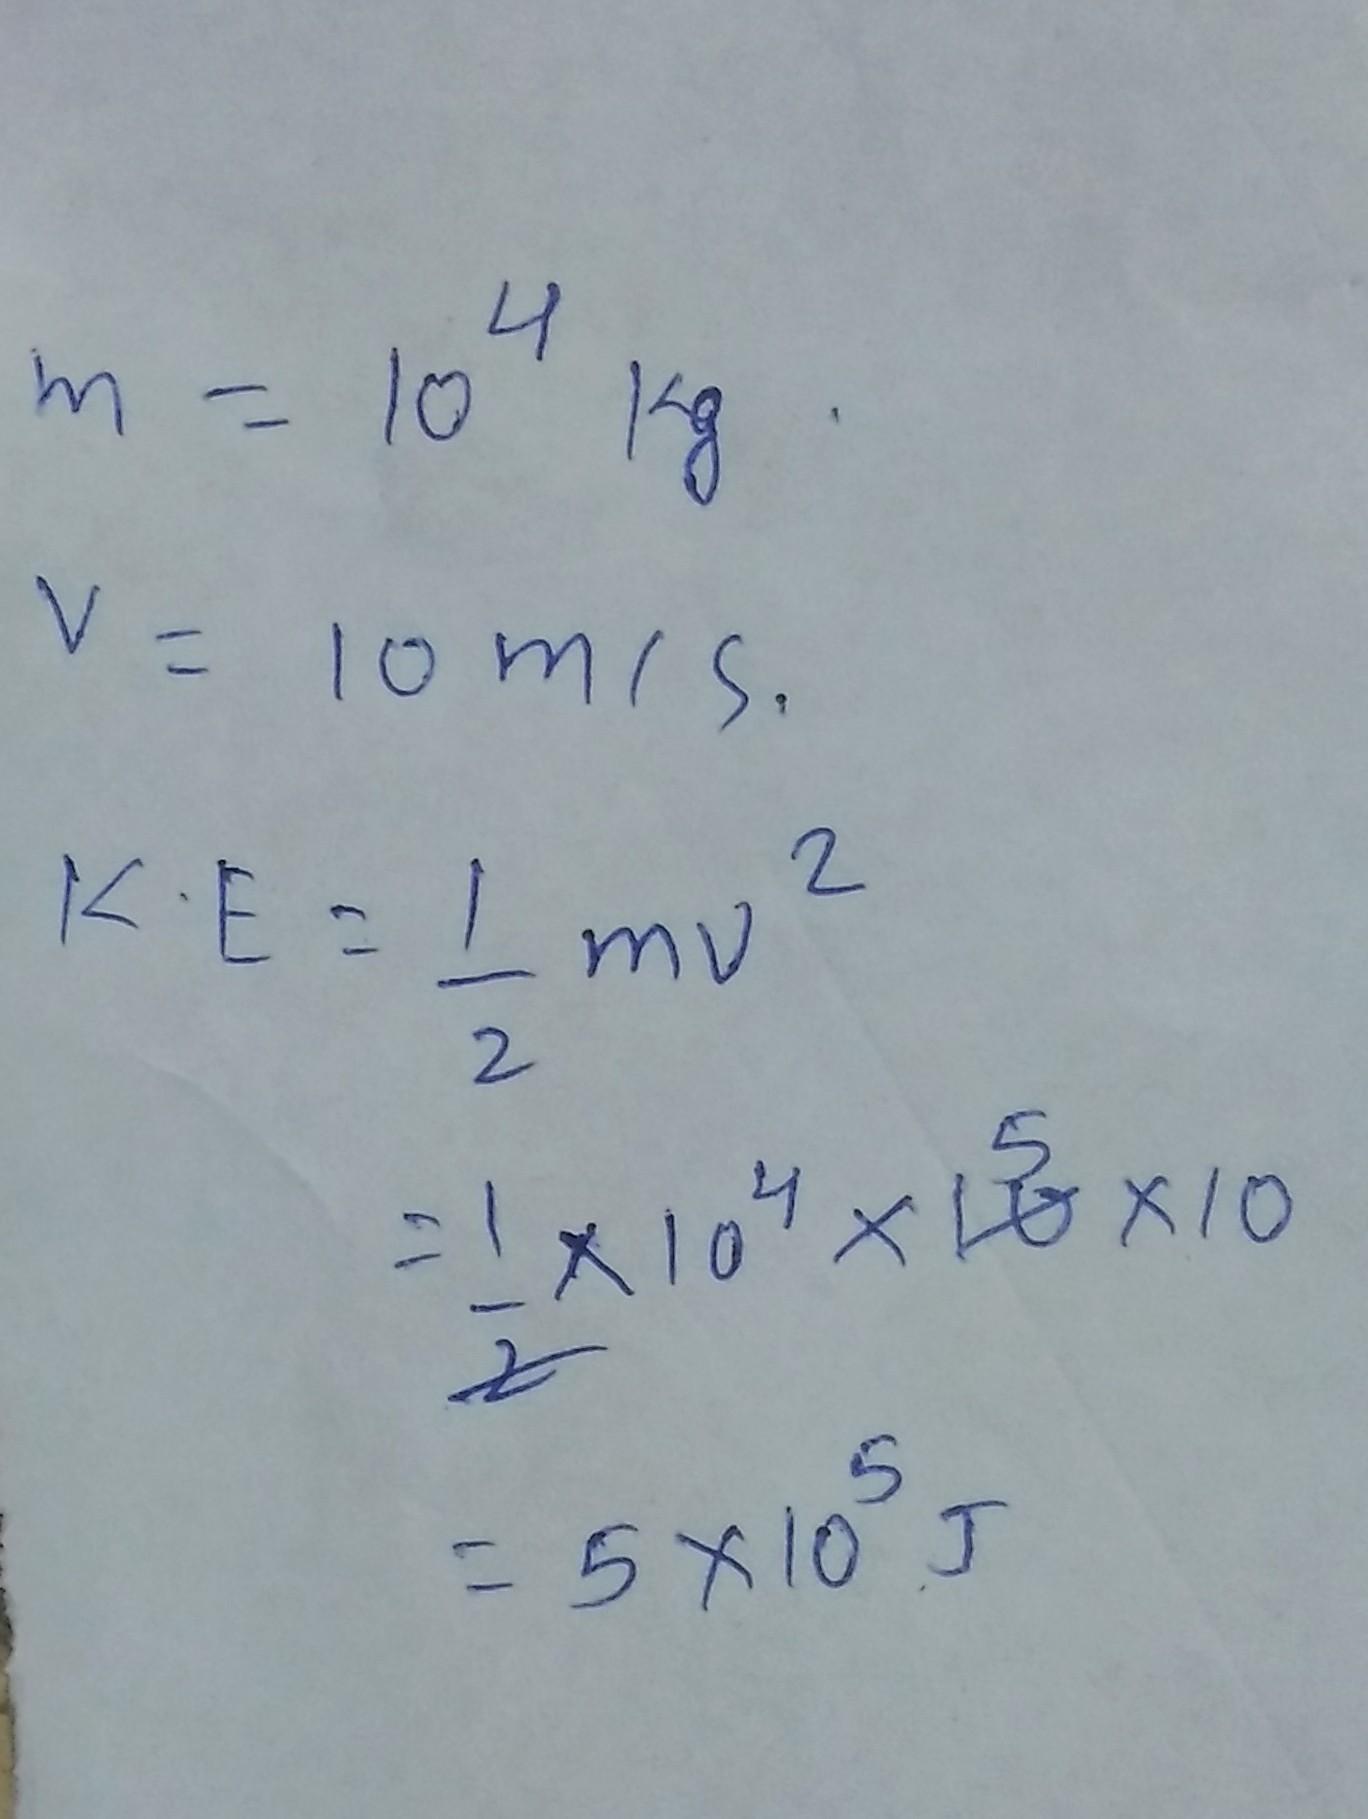 m = 10⁴ Kg.
V = 10 m/s.
K.E = 1/2 mv²
= 1/2 × 10⁴ × 10 5 × 10
= 5 × 10⁵ J